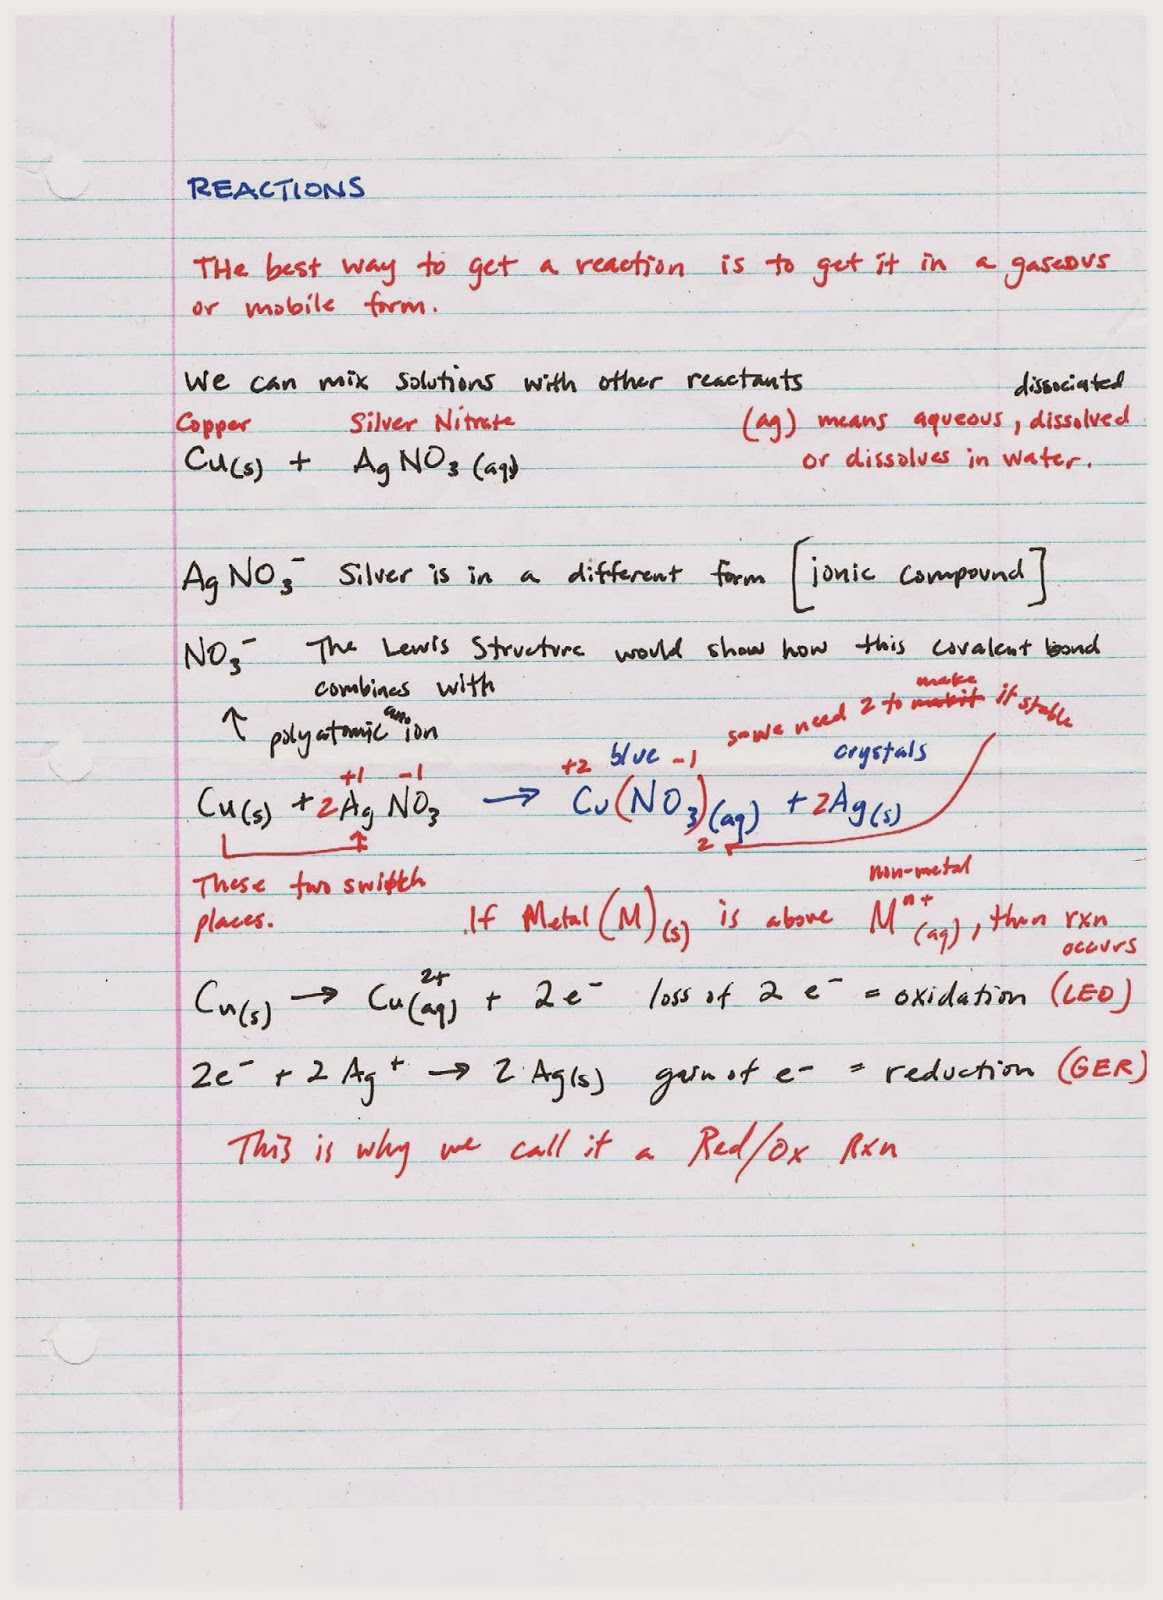 REACTIONS
THe best way to get a reaction is to get it in a gaseous
or mobile form.
We can mix solutions with other reactants
dissociated
Copper Silver Nitrate (aq) means aqueous, dissolved
Cu(s) + AgNO₃ (aq) or dissolves in water.
AgNO₃⁻ Silver is in a different form [ionic compound]
NO₃⁻ The Lewis Structure would show how this covalent bond
combines with
make
so we need 2 to it stable
↑ polyatomic ion
+2 blue -1 crystals
+1 -1
Cu(s) + 2AgNO₃ → Cu(NO₃)₂(aq) + 2Ag(s)
These two switch
places.
non-metal
If Metal (M)(s) is above Mⁿ⁺(aq), then rxn
occurs
Cu(s) → Cu²⁺(aq) + 2e⁻ loss of 2 e⁻ = oxidation (LEO)
2e⁻ + 2Ag⁺ → 2Ag(s) gain of e⁻ = reduction (GER)
This is why we call it a Red/Ox Rxn